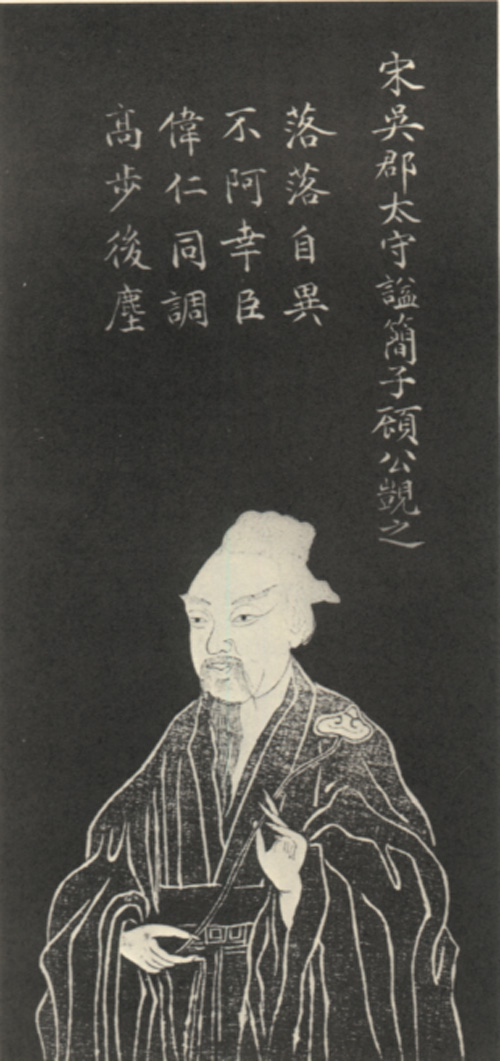 宋吳郡太守謚簡子顧公覬之
落落自異
不阿幸臣
偉仁同調
高步後塵